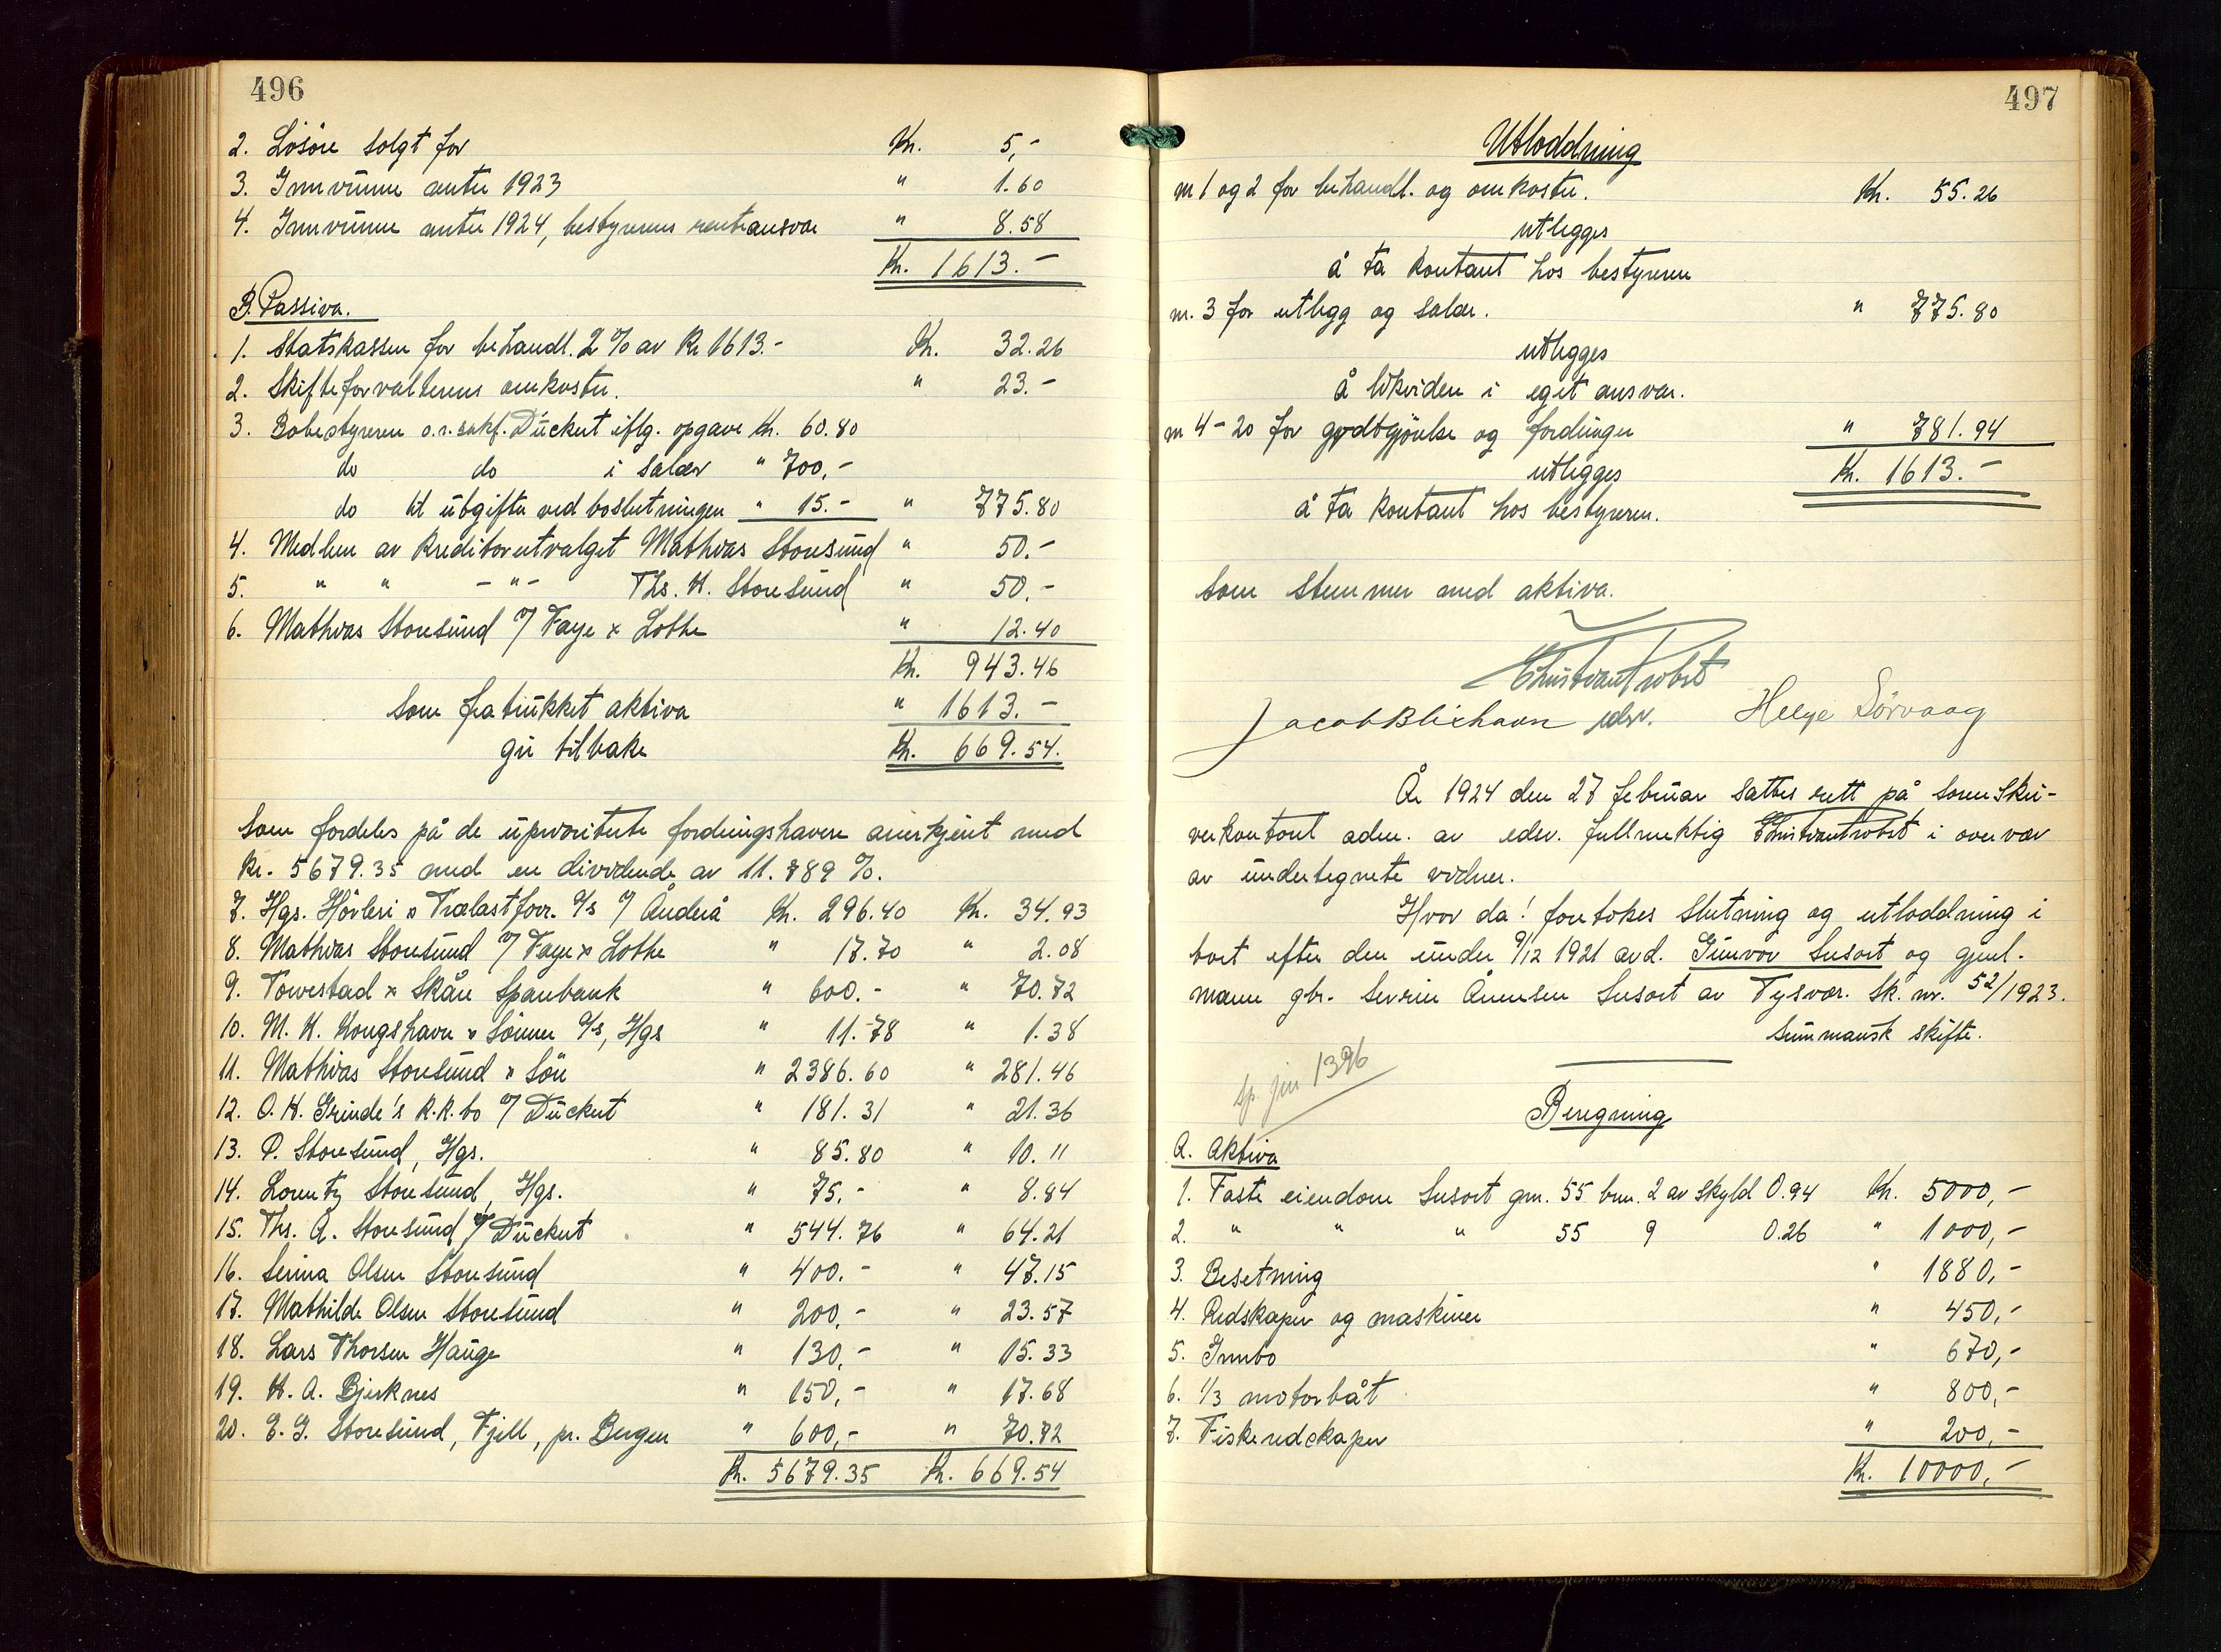 496
2. Løsøre solgt for Kr. 5,-
3. Innvunne renter 1923 " 1.60
4. Innvunne renter 1924, bestyrerens renteansvar " 8.58
Kr. 1613.-
B. Passiva.
1. Statskassen for behandl. 2 % av Kr 1613.- Kr. 32.26
2. Skifteforvalterens omkostn. " 23.-
3. Bobestyreren o.r.sakf. Dückert iflg. opgave Kr. 60.80
do do i salær " 700,-
do til utgifter ved boslutningen " 15.- " 775.80
4. Medlem av kreditorutvalget Mathias Storesund " 50.-
5. " " - " - Ths. K. Storesund " 50.-
6. Mathias Storesund v/ Faye & Lothe " 12.40
Kr. 943.46
som fratrukket aktiva " 1613.-
gir tilbake Kr. 669.54.
som fordeles på de uprioriterte fordringshavere anerkjent med
kr. 5679.35 med en dividende av 11.789 %.
7. Hgs. Høvleri & Trælastforr. A/s v/ Anderå Kr. 296.40 Kr. 34.93
8. Mathias Storesund v/ Faye & Lothe " 17.70 " 2.08
9. Torvestad & Skåre Sparebank " 600.- " 70.72
10. M. K. Kongshavn & Sønner A/s, Hgs " 11.78 " 1.38
11. Mathias Storesund & Søn " 2386.60 " 281.46
12. O. K. Grinde's k.k. bo v/ Dückert " 181.31 " 21.36
13. P. Storesund, Hgs. " 85.80 " 10.11
14. Lorentz Storesund, Hgs. " 75,- " 8.84
15. Ths. A. Storesund v/ Dückert " 544.76 " 64.21
16. Serina Olsen Storesund " 400.- " 47.15
17. Mathilde Olsen Storesund " 200,- " 23.57
18. Lars Thorsen Hauge " 130,- " 15.33
19. K. A. Bjerknes " 150,- " 17.68
20. E. G. Storesund, Fjell, pr. Bergen " 600,- " 70.72
Kr. 5679.35 Kr. 669.54
497
Utloddning
nr 1 og 2 for behandl. og omkostn. Kr. 55.26
utlegges
å ta kontant hos bestyreren
nr. 3 for utlegg og salær. " 775.80
utlegges
å likvidere i eget ansvar.
nr 4-20 for godtgjørelse og fordringer " 781.94
utlegges Kr. 1613.-
å ta kontant hos bestyreren.
som stemmer med aktiva.
Jacob Blixhavn edsv. Helge Sørvaag
År 1924 den 27 februar sattes rett på sorenskri-
verkontoret adm. av edsv. fullmektig i overvær
av undertegnete vidner.
Hvor da! foretokes slutning og utloddning i
boet efter den under 9/12 1921 avd. Gunvor Susort og gjenl.
mann gbr. Severin Ånensen Susort av Tysvær. Sk. nr. 52/1923.
Summarisk skifte.
1396
Beregning
A. Aktiva
1. Faste eiendom Susort gnr. 55 bnr. 2 av skyld 0.94 Kr. 5000,-
2. " " " 55 9 0.26 " 1000,-
3. Besetning " 1880,-
4. Redskaper og maskiner " 450,-
5. Innbo " 670,-
6. 1/3 motorbåt " 800,-
7. Fiskeredskaper " 200,-
Kr. 10000,-